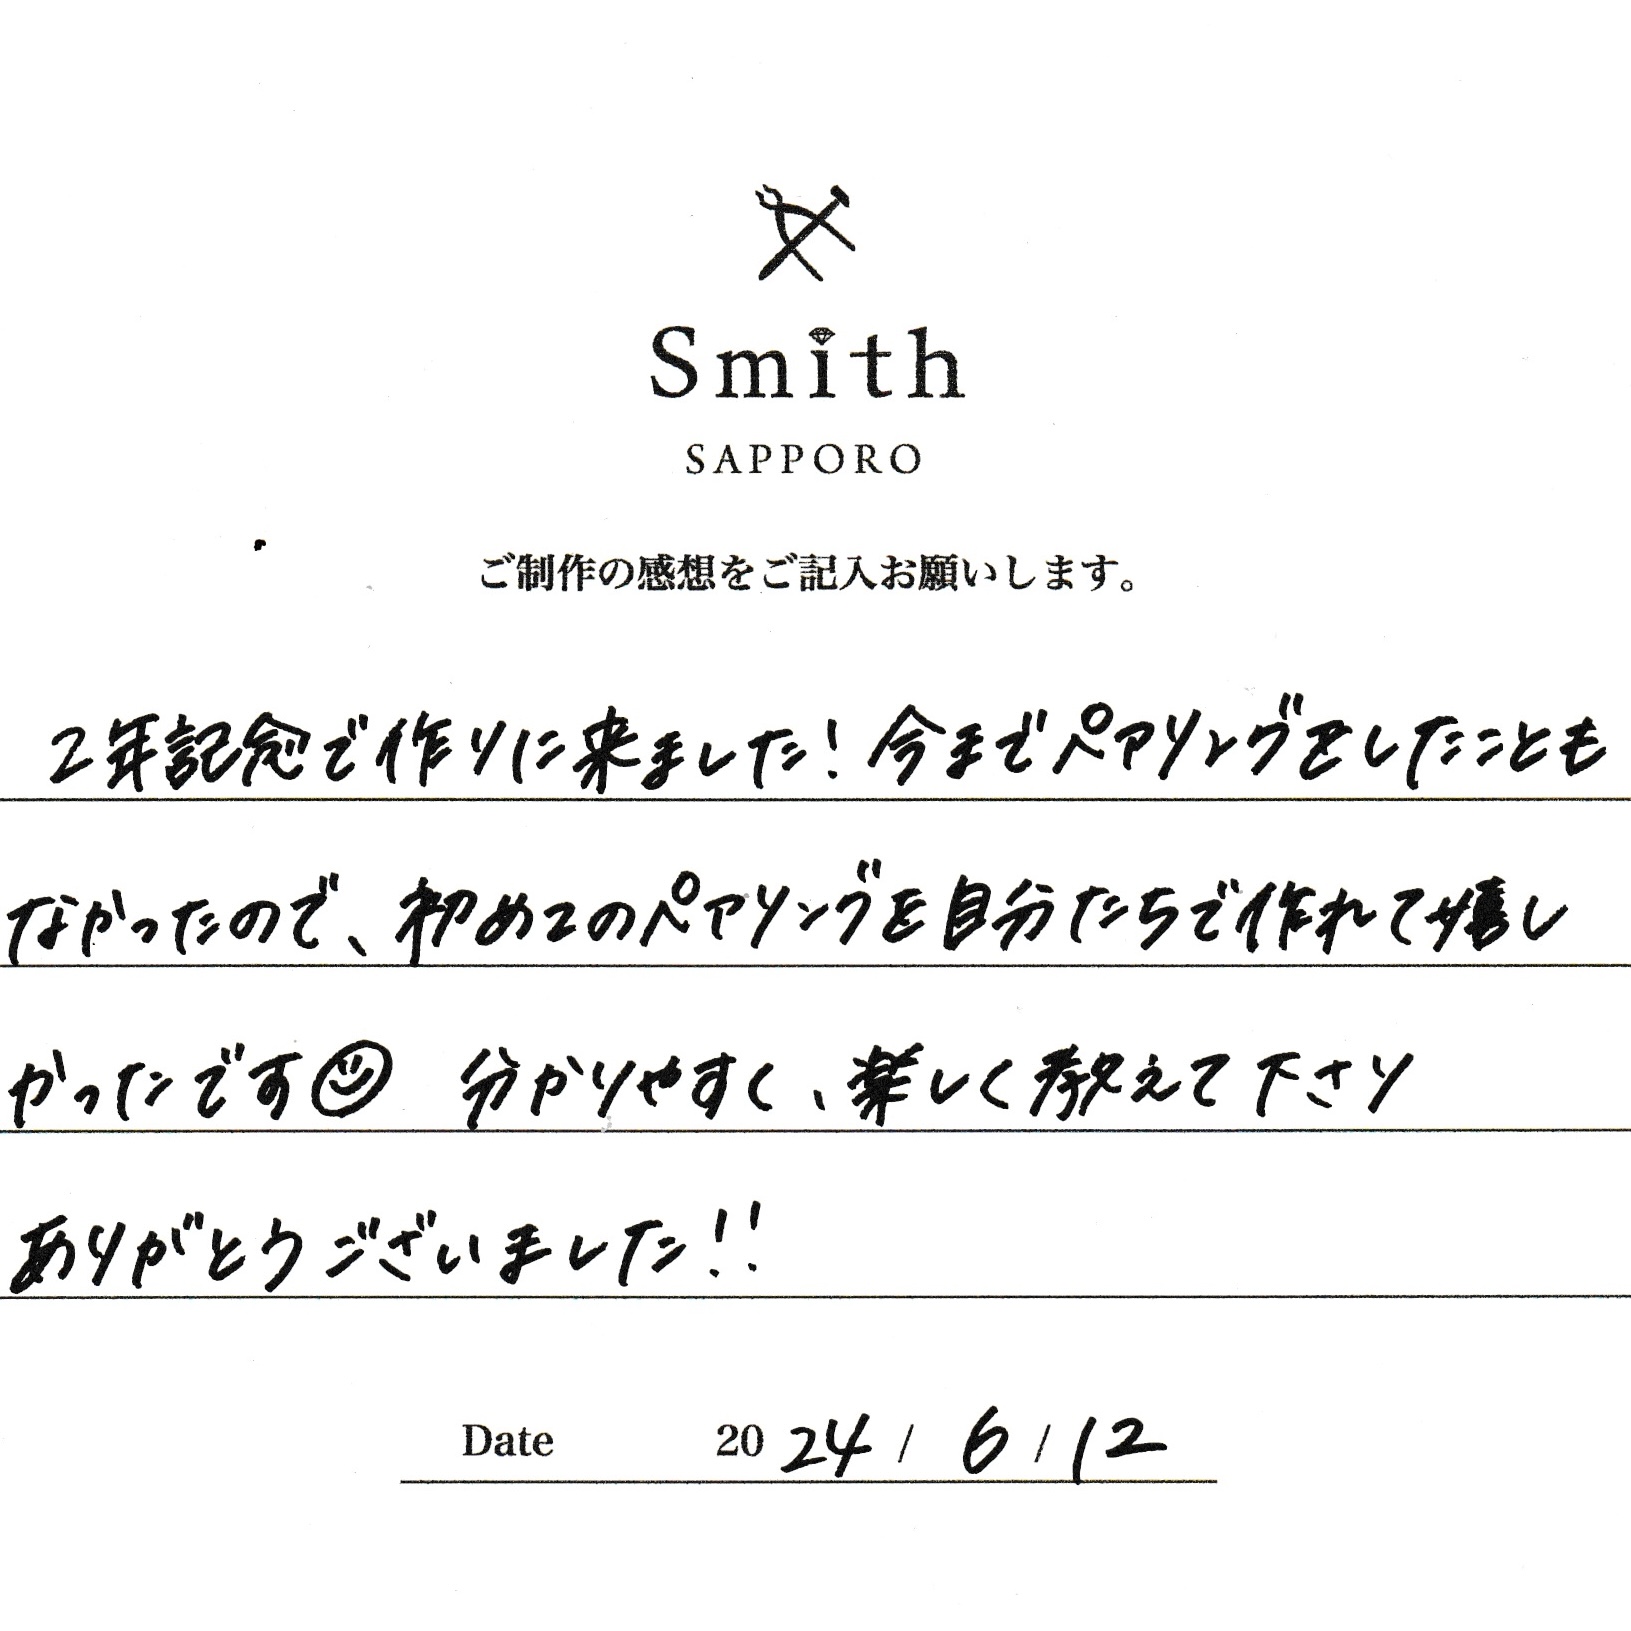 Smith
SAPPORO
ご制作の感想をご記入お願いします。
2年記念で作りに来ました！今までペアリングをしたことも
なかったので、初めてのペアリングを自分たちで作れて嬉し
かったです☺ 分かりやすく、楽しく教えて下さり
ありがとうございました!!
Date 2024 / 6 / 12